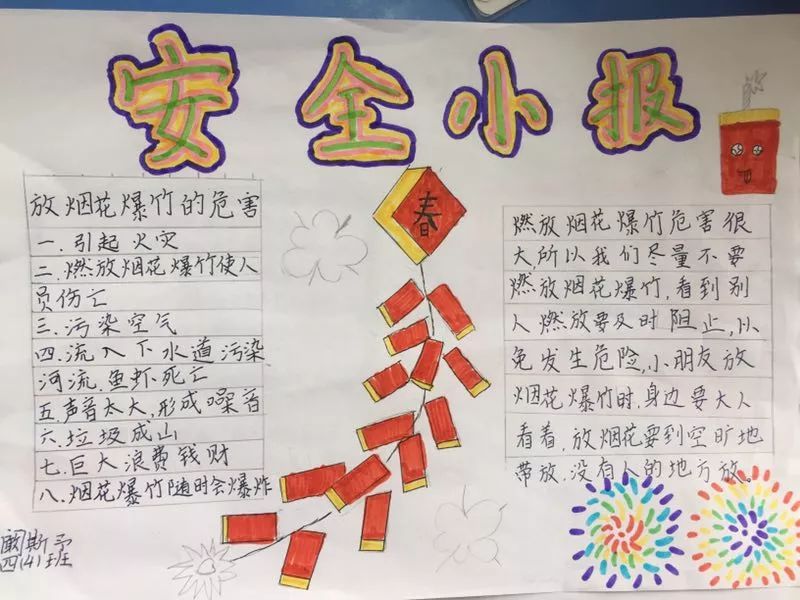 安全小报
放烟花爆竹的危害
一.引起火灾
二.燃放烟花爆竹使人
员伤亡
三.污染空气
四.流入下水道污染
河流.鱼虾死亡
五.声音太大,形成噪音
六.垃圾成山
七.巨大浪费钱财
八.烟花爆竹随时会爆炸
春
燃放烟花爆竹危害很
大,所以我们尽量不要
燃放烟花爆竹,看到别
人燃放要及时阻止,以
免发生危险,小朋友放
烟花爆竹时,身边要大人
看着,放烟花要到空旷地
带放,没有人的地方放。
斯予
四(4)班